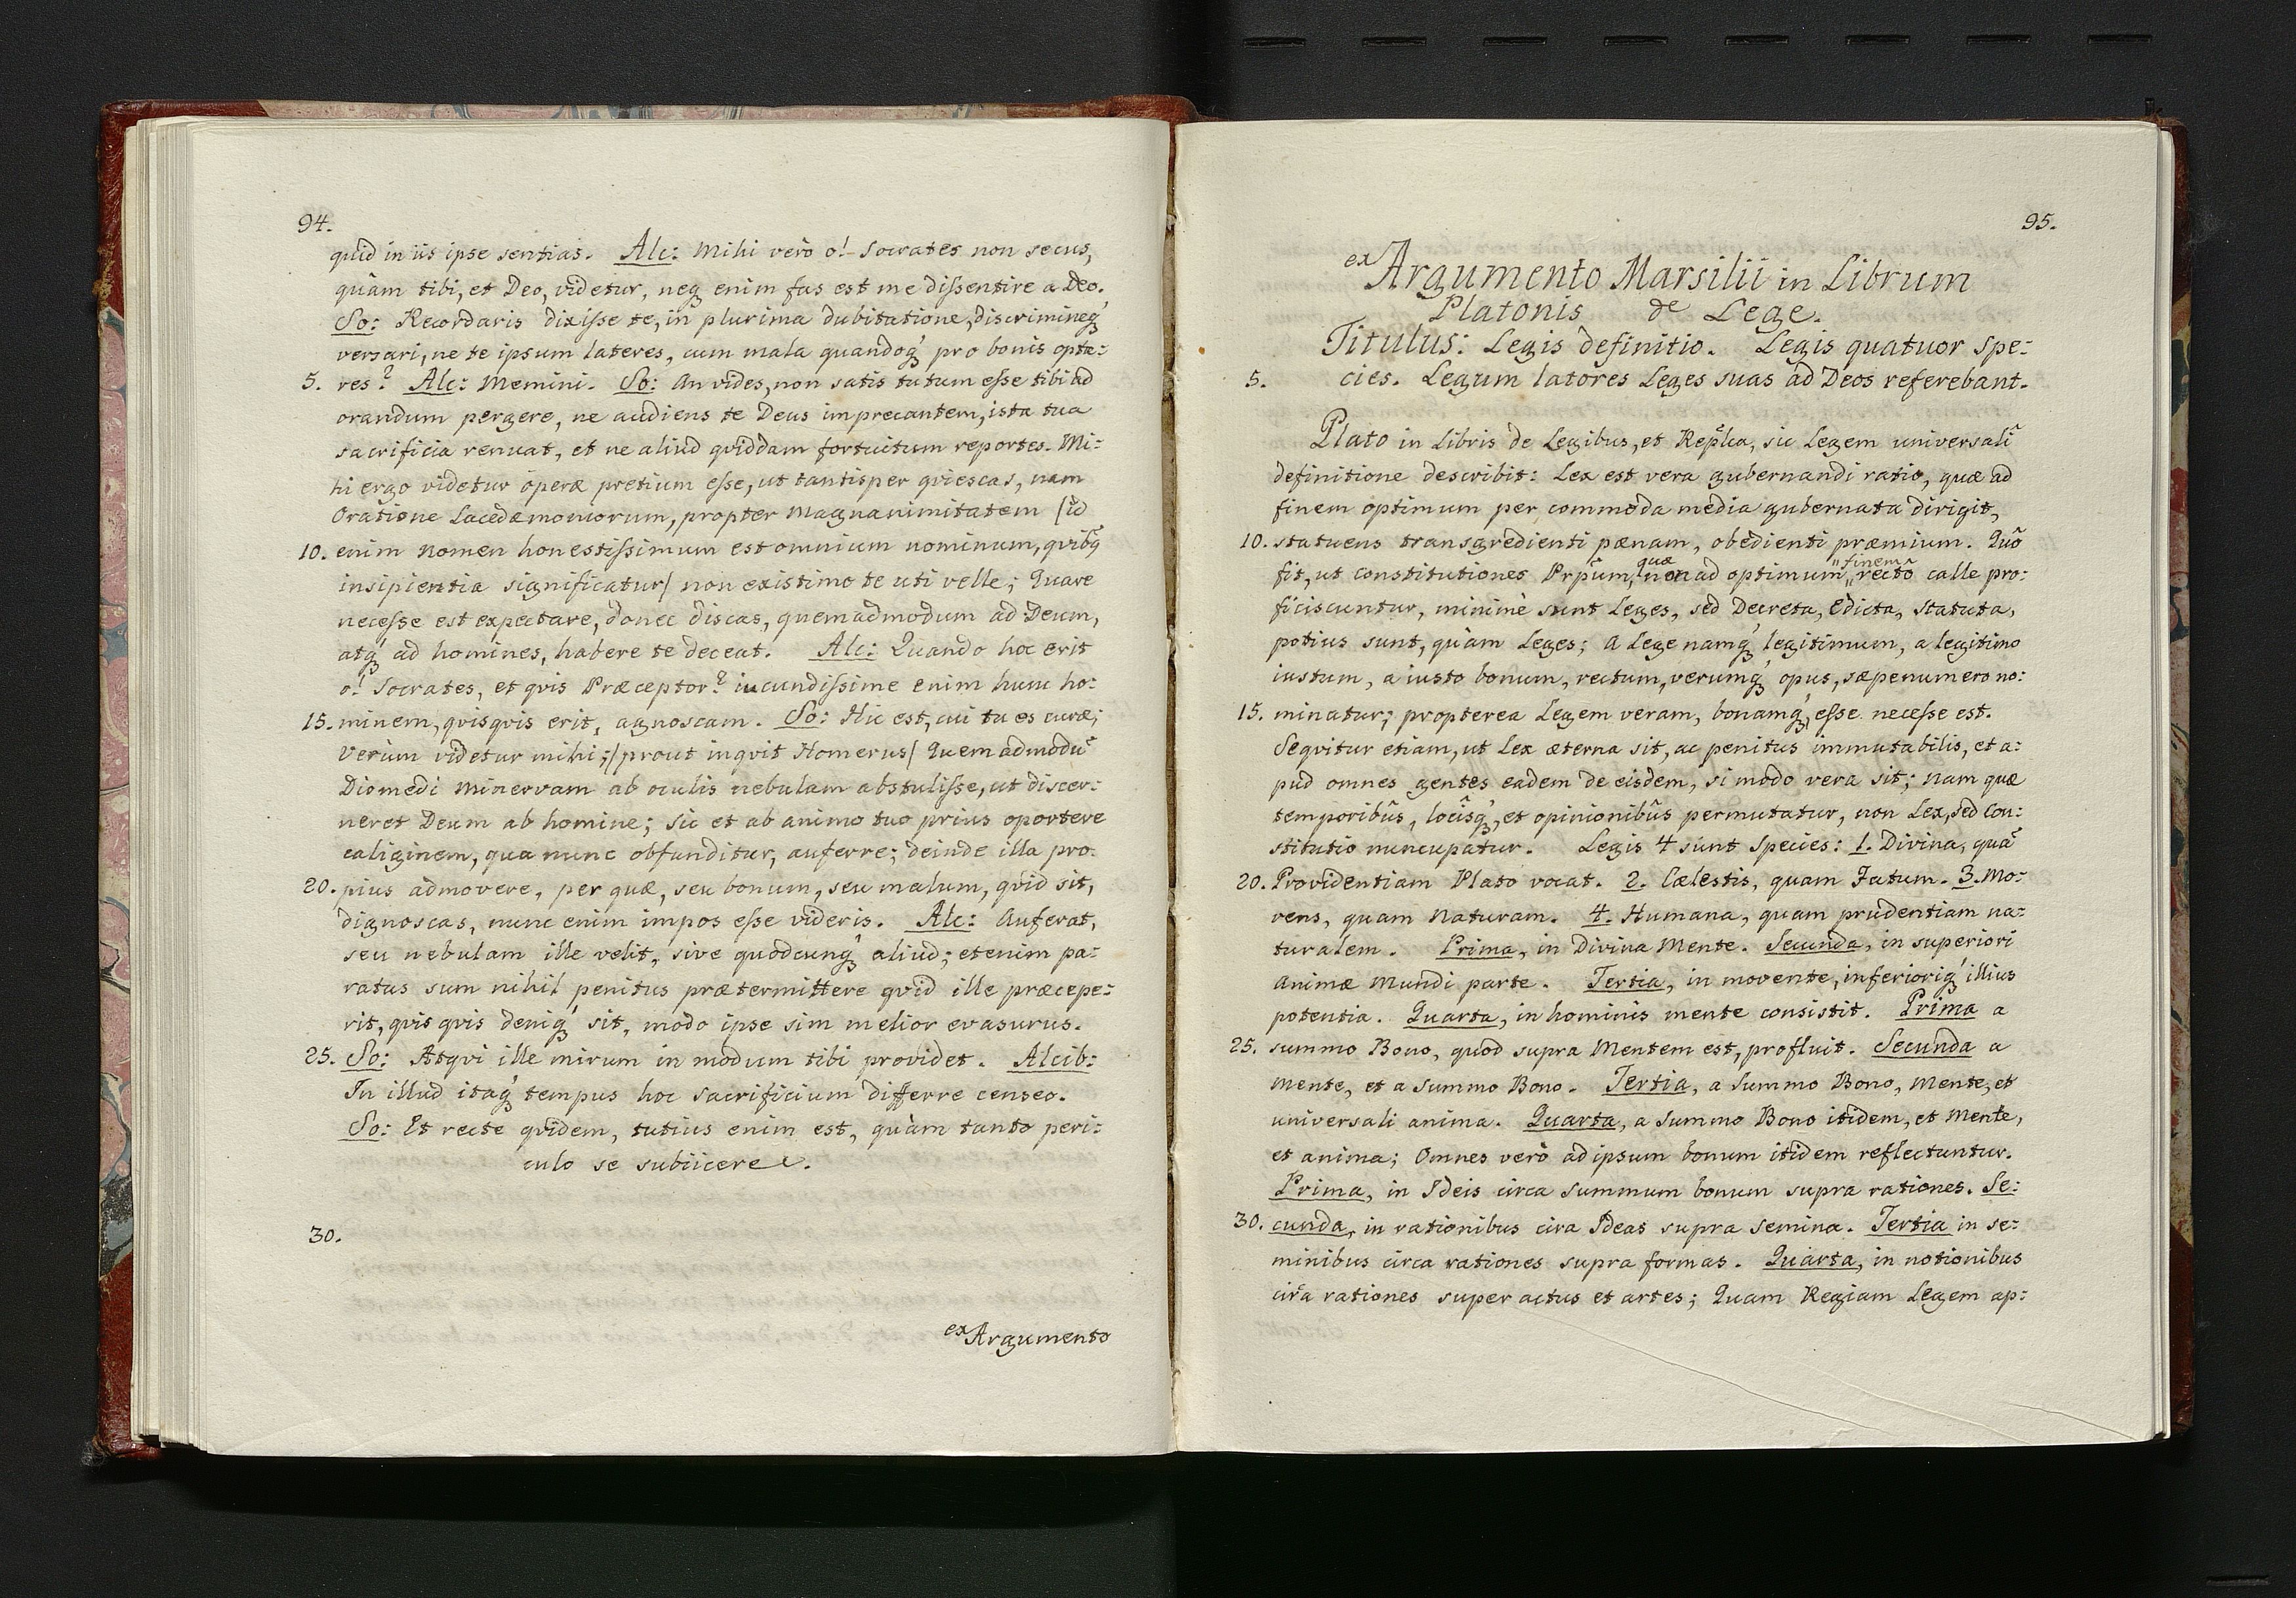 94.
quid in iis ipse sentias. Alc: Mihi verò o! Socrates non secus,
quàm tibi, et Deo, videtur, neq enim fas est me dissentire a Deo.
So: Recordaris dixisse te, in plurima dubitatione, discrimineq́
versari, ne te ipsum lateres, cum mala quandoq́ pro bonis opta:
5. res? Alc: Memini. So: An vides, non satis tutum esse tibi ad
orandum pergere, ne audiens te Deus imprecantem, ista tua
sacrificia renuat, et ne aliud qviddam fortuitum reportes. Mi:
hi ergo videtur operæ pretium esse, ut tantisper qviescas, nam
Oratione Lacedæmoniorum, propter Magnanimitatem (id
10. enim nomen honestissimum est omnium nominum, qvibq̃
insipientia significatur) non existimo te uti velle; Quare
necesse est expectare, donec discas, quemadmodum ad Deum,
atq́ ad homines, habere te deceat. Alc: Quando hoc erit
o! Socrates, et qvis Præceptor? iucundissime enim hunc ho:
15. minem, qvisqvis erit, agnoscam. So: Hic est, cui tu es curæ;
Verùm videtur mihi; (prout inqvit Homerus) Quemadmodũ
Diomedi Minervam ab oculis nebulam abstulisse, ut discer:
neret Deum ab homine; sic et ab animo tuo prius oportere
caliginem, qua nunc obfunditur, auferre; deinde illa pro:
20. pius admovere, per quæ, seu bonum, seu malum, qvid sit,
dignoscas, nunc enim impos esse videris. Alc: Auferat,
seu nebulam ille velit, sive quodcunq́ aliud; etenim pa:
ratus sum nihil penitus prætermittere qvid ille præcepe:
rit, qvis qvis deniq́ sit, modo ipse sim melior evasurus.
25. So: Atqvi ille mirum in modum tibi providet. Alcib:
In illud itaq́ tempus hoc sacrificium differre censeo.
So: Et recte qvidem, tutius enim est, quàm tanto peri:
culo se subiicere.
30.
ex Argumento
95.
ex Argumento Marsilii in Librum
Platonis de Lege.
Titulus: Legis definitio. Legis quatuor Spe:
5. cies. Legum latores Leges suas ad Deos referebant.
Plato in Libris de Legibus, et Repl̃ca, sic Legem universalĩ
definitione describit: Lex est vera gubernandi ratio, quæ ad
finem optimum per commoda media gubernata dirigit,
10. statuens transgredienti pænam, obedienti præmium. Quõ
fit, ut constitutiones Prp̃um, quæ non ad optimum finem rectõ calle pro:
ficiscuntur, minimè sunt Leges, sed Decreta, Edicta, Statuta,
potius sunt, quàm Leges; A Lege namq́ legitimum, a legitimo
iustum, a iusto bonum, rectum, verumq́ opus, sæpenumero no:
15. minatur; propterea Legem veram, bonamq́, esse necesse est.
Seqvitur etiam, ut Lex æterna sit, ac penitus immutabilis, et a:
pud omnes gentes eadem de eisdem, si modo vera sit; Nam quæ
temporibũs, locĩsq́, et opinionibũs permutatur, non Lex, sed Con:
stitutio nuncupatur. Legis 4 sunt Species: 1. Divina, quã
20. Providentiam Plato vocat. 2. Cælestis, quam Fatum. 3. Mo:
vens, quam Naturam. 4. Humana, quam prudentiam na:
turalem. Prima, in Divina Mente. Secunda, in superiori
Animæ Mundi parte. Tertia, in movente, inferioriq́ illius
potentia. Quarta, in hominis mente consistit. Prima a
25. summo Bono, quod supra Mentem est, profluit. Secunda a
Mente, et a Summo Bono. Tertia, a Summo Bono, Mente, et
universali anima. Quarta, a Summo Bono itidem, et Mente,
et anima; Omnes verò ad ipsum bonum itidem reflectuntur.
Prima, in Ideis circa summum bonum supra rationes. Se:
30. cunda, in rationibus cira Ideas supra semina. Tertia in se:
minibus circa rationes supra formas. Quarta, in notionibus
cira rationes super actus et artes; Quam Regiam Legem ap: